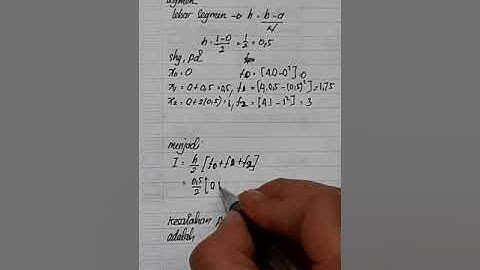 segmen
lebar segmen → h = b-a/N
h = 1-0/2 = 1/2 = 0,5
shg, pd
x₀ = 0 f₀ = [4.0-0²] = 0
x₁ = 0+0,5 = 0,5, f₁ = [4.0,5-(0,5)²] = 1,75
x₂ = 0+2(0,5) = 1, f₂ = [4.1-1²] = 3
menjadi
I = h/2 [f₀+f1+f2]
= 0,5/2 [0
Kesalahan
adalah